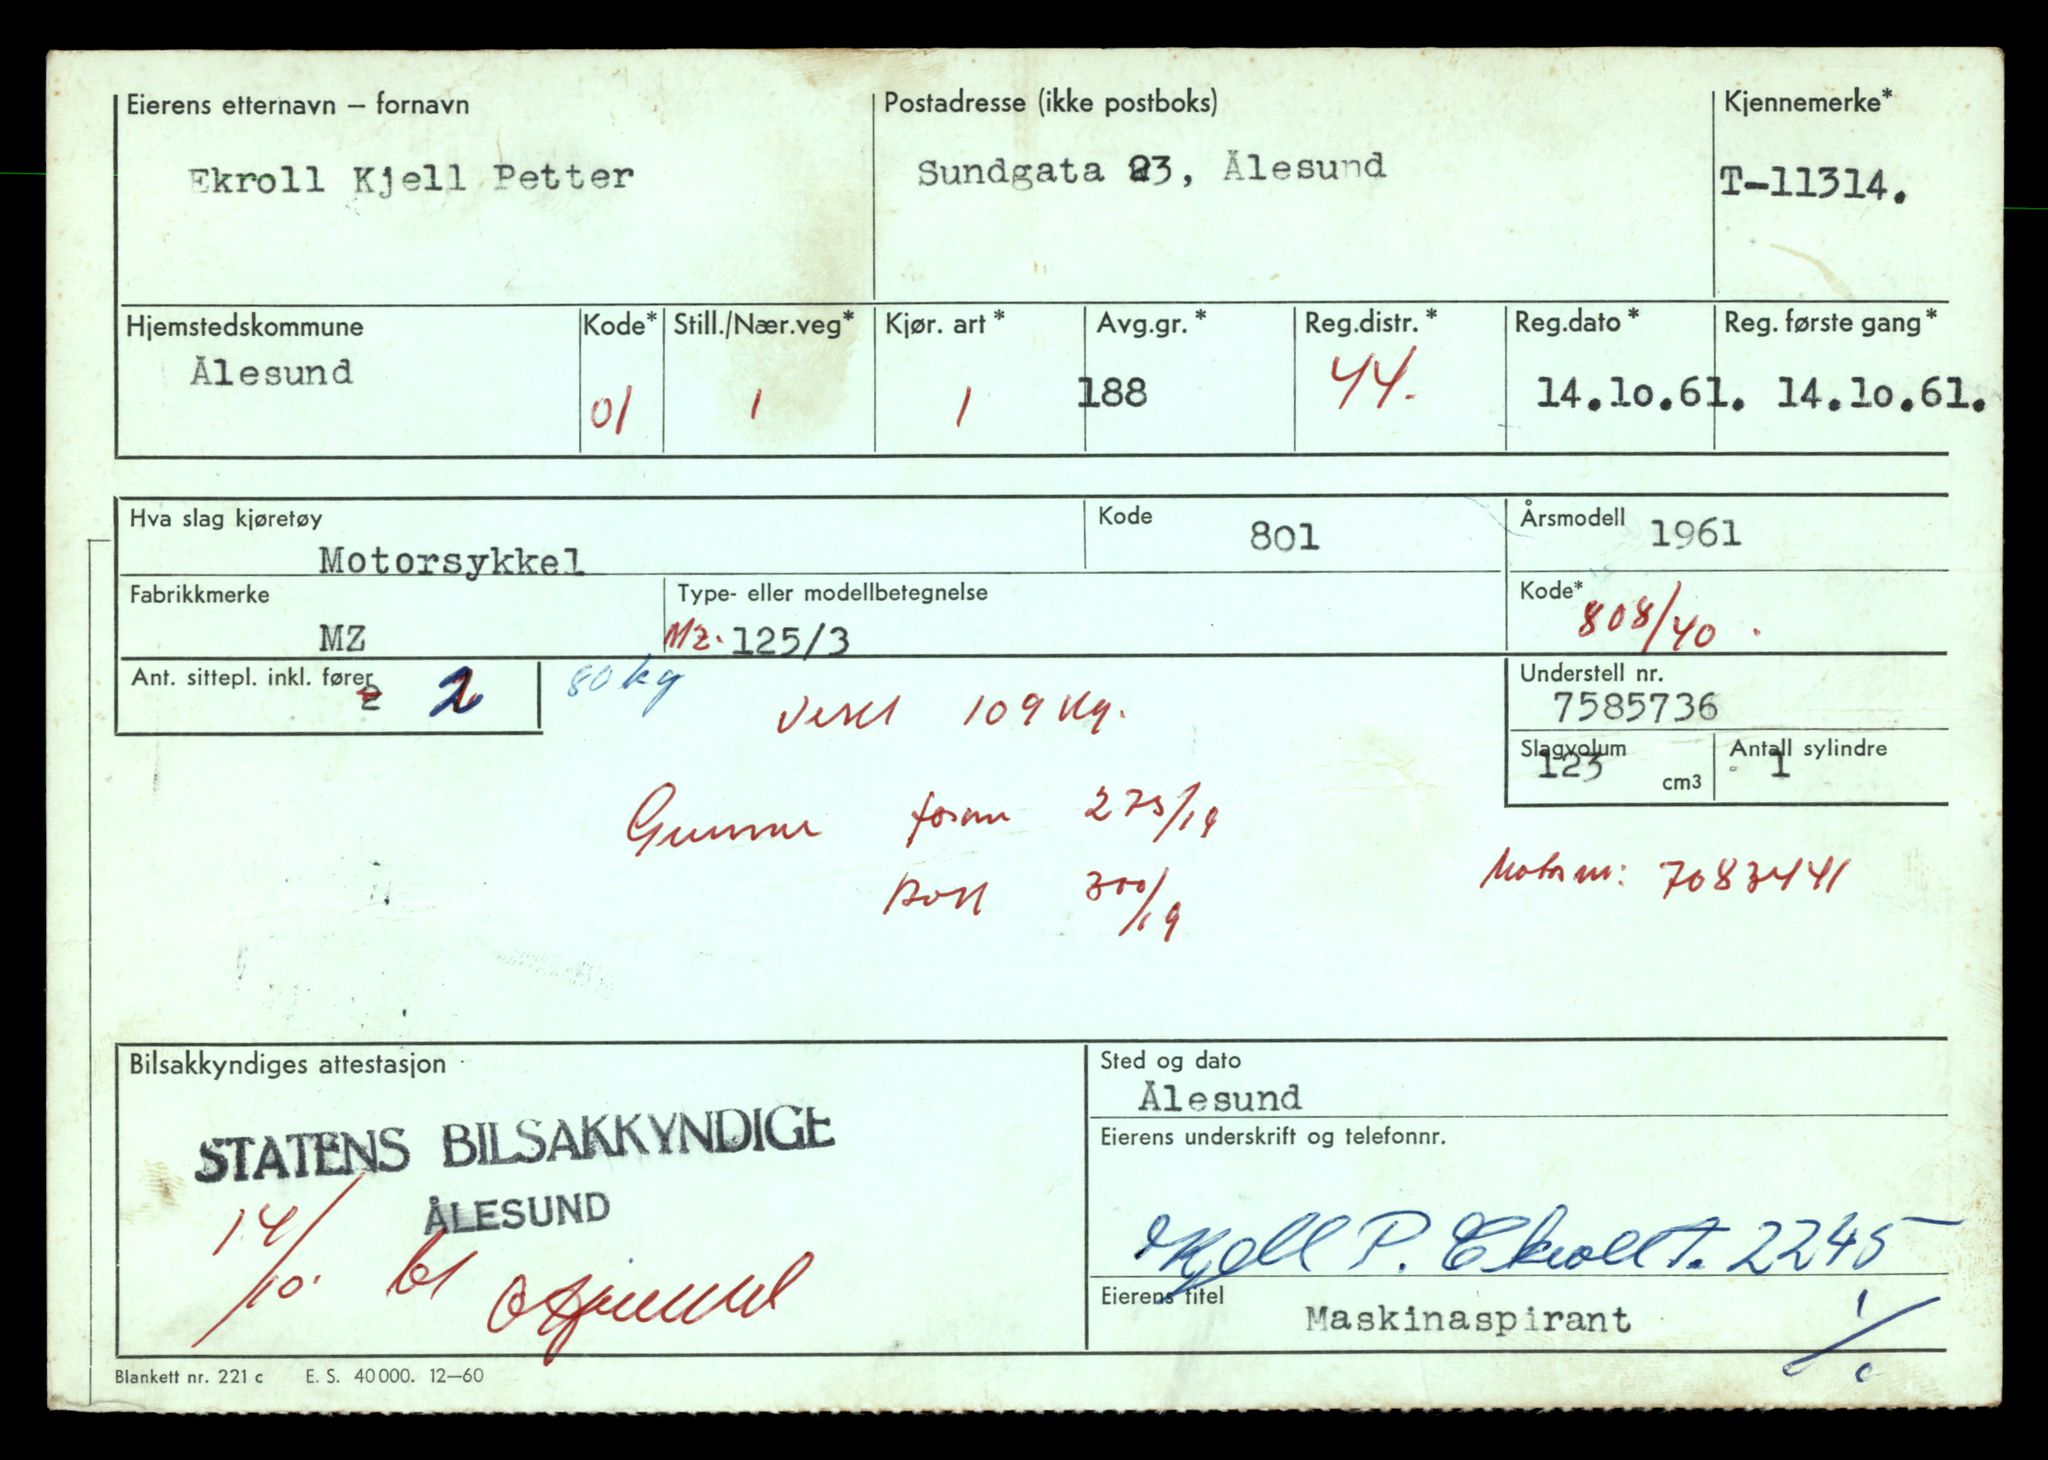 Eierens etternavn – fornavn
Postadresse (ikke postboks)
Kjennemerke*
Ekroll Kjell Petter
Sundgata 23, Ålesund
T-11314.
Hjemstedskommune
Kode*
Still./Nær.veg*
Kjør. art *
Avg.gr. *
Reg.distr. *
Reg.dato *
Reg. første gang *
Ålesund
01
1
1
188
44.
14.10.61.
14.10.61.
Hva slag kjøretøy
Motorsykkel
Kode
801
Årsmodell
1961
Fabrikkmerke
MZ
Type- eller modellbetegnelse
MZ. 125/3
Kode*
808/40.
Ant. sittepl. inkl. fører
2 2
80 kg
Vekt 109 kg.
Understell nr.
7585736
Slagvolum
123 cm3
Antall sylindre
1
Gummi foran 275/19
300/19
Motornr: 7083441
Bilsakkyndiges attestasjon
STATENS BILSAKKYNDIGE
ÅLESUND
14/10. 61
Sted og dato
Ålesund
Eierens underskrift og telefonnr.
Kjell P. Ekroll t. 2245
Eierens titel
Maskinaspirant
Blankett nr. 221 c E. S. 40 000. 12—60